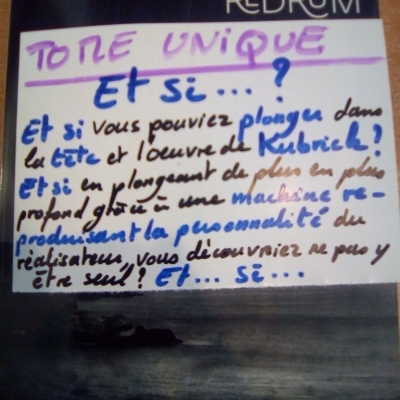 REDRUM
TOME UNIQUE
Et si... ?
Et si vous pouviez plonger dans
la tête et l'oeuvre de Kubrick ?
Et si en plongeant de plus en plus
profond grâce à une machine re-
produisant la personnalité du
réalisateur, vous découvriez ne pas y
être seul ? Et... si...